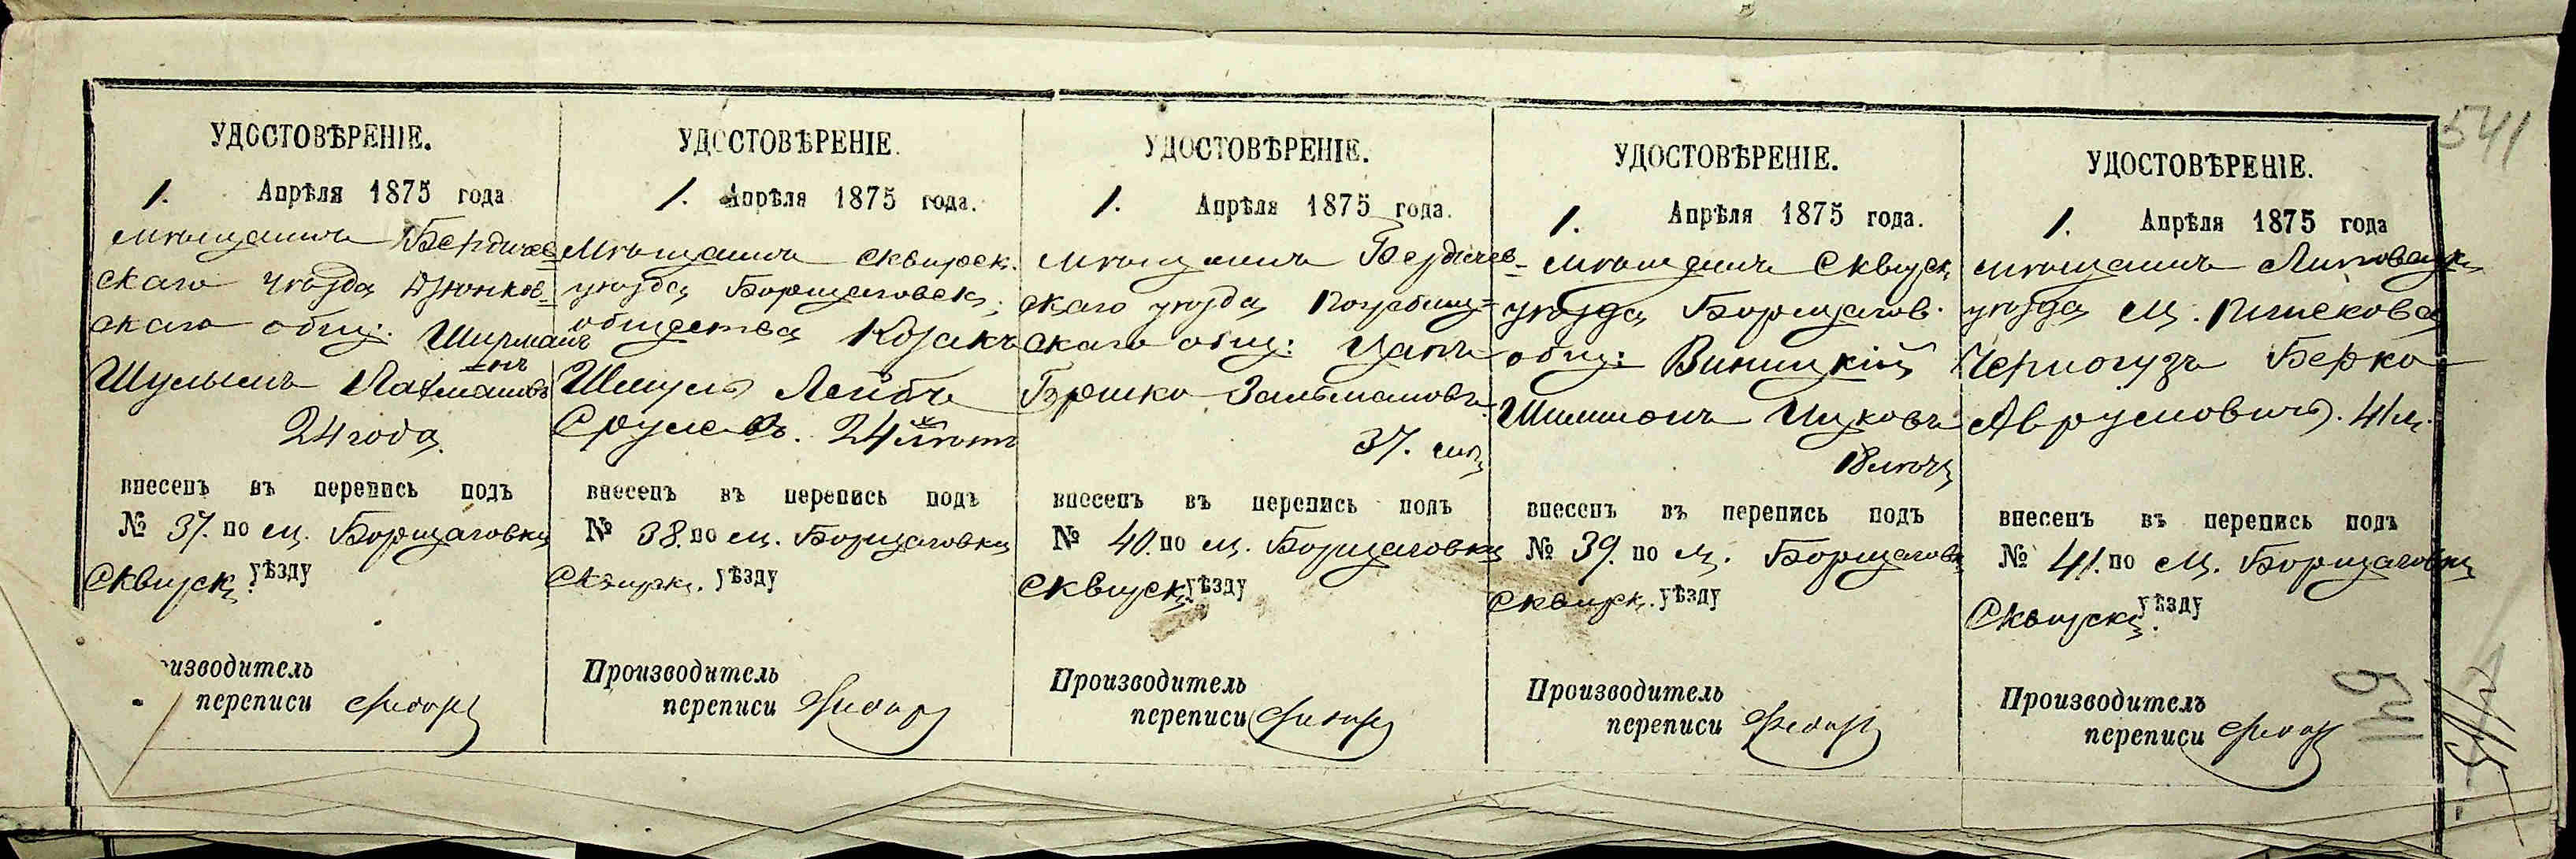 541
УДОСТОВѢРЕНІЕ.
1. Апрѣля 1875 года
мѣщанинъ Бердичев-
скаго уѣзда Дзюнков-
скаго общ: Ширманъ
Шулымъ Лахмановъ
24 года.
внесенъ въ перепись подъ
№ 37. по м. Борщаговки
Сквирск. уѣзду
изводитель
переписи
УДОСТОВѢРЕНІЕ.
1. Апрѣля 1875 года.
Мѣщанинъ Сквирск.
уѣзда Борщаговск.
общества Козакъ
Шмуль Лейбъ
Срулевъ. 24 лѣтъ
внесенъ въ перепись подъ
№ 38. по м. Борщаговки
Сквирск. уѣзду
Производитель
переписи
УДОСТОВѢРЕНІЕ.
1. Апрѣля 1875 года.
мѣщанинъ Бердичев-
скаго уѣзда Погребищ-
скаго общ: Цапъ
Гершко Зальмановъ.
37. лѣт
внесенъ въ перепись подъ
№ 40. по м. Борщаговки
Сквирск. уѣзду
Производитель
переписи
УДОСТОВѢРЕНІЕ.
1. Апрѣля 1875 года.
мѣщанинъ Сквирск
уѣзда Борщагов.
общ: Виницкій
Шимшонъ Ицковъ
18 лѣтъ
внесенъ въ перепись подъ
№ 39. по м. Борщаговк
Сквирск. уѣзду
Производитель
переписи
УДОСТОВѢРЕНІЕ.
1. Апрѣля 1875 года
мѣщанинъ Липовецк
уѣзда м. Пятекова
Черногузъ Берко
Аврумовичъ. 41 л.
внесенъ въ перепись подъ
№ 41. по м. Борщаговки
Сквирск. уѣзду
Производитель
переписи